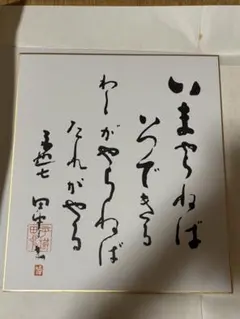 いまやらねば
いつできる
わしがやらねば
たれがやる